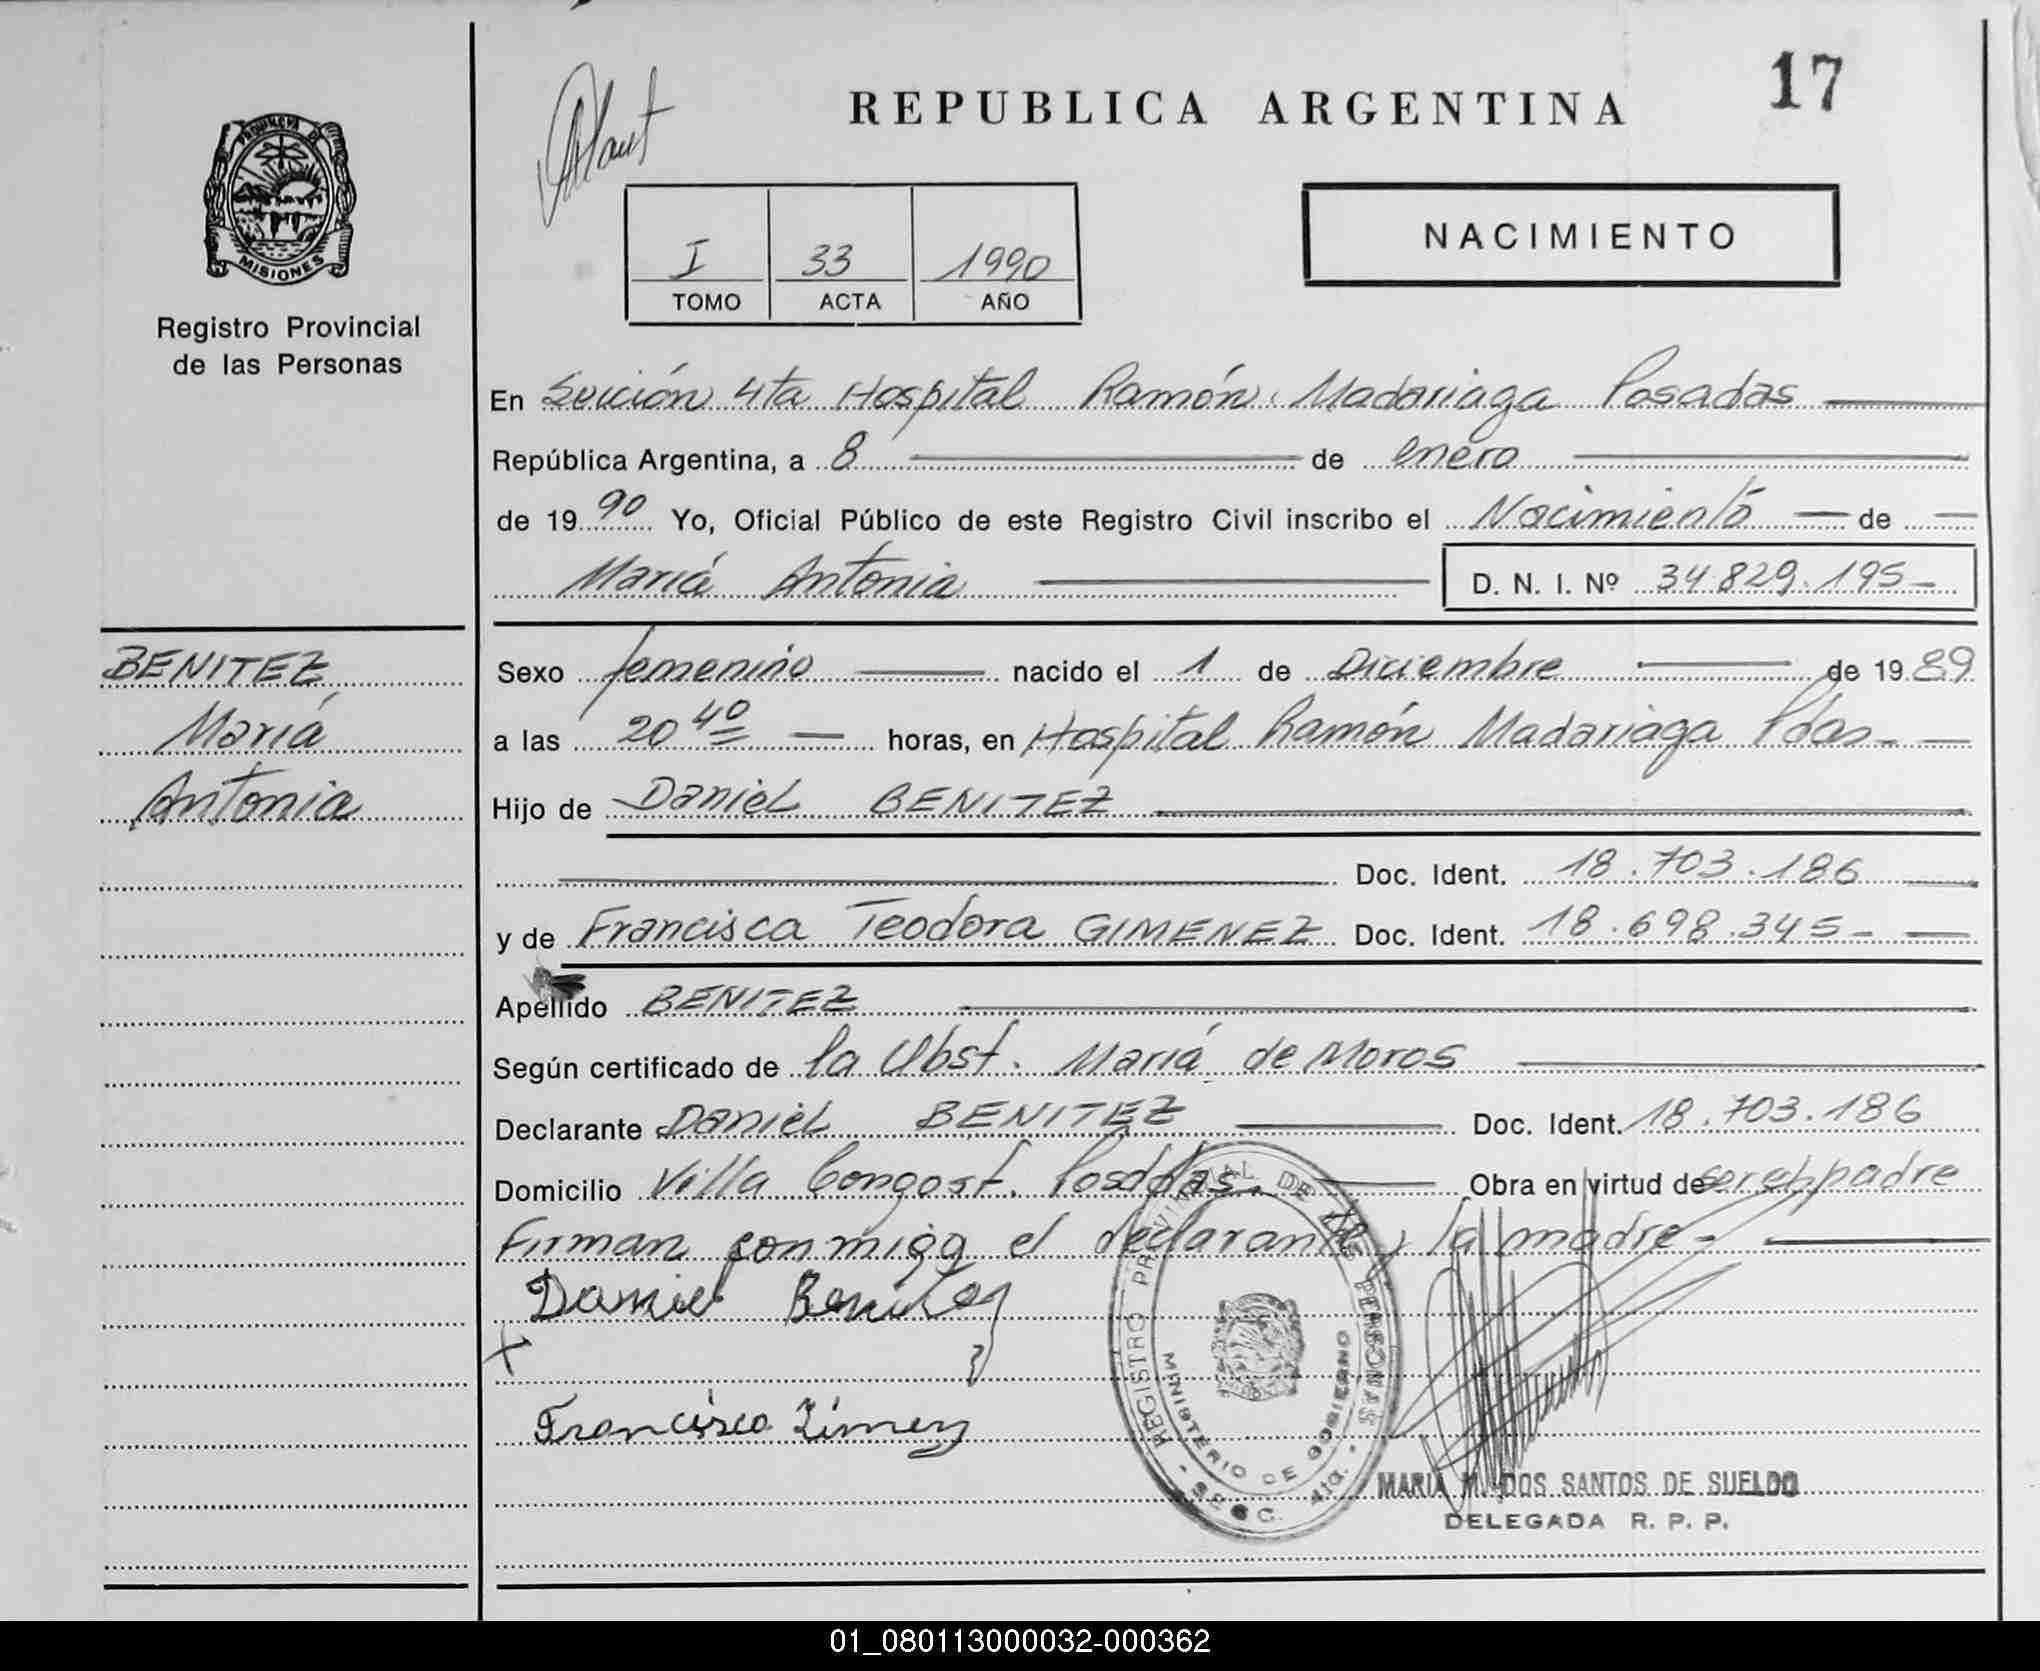 17
REPUBLICA ARGENTINA
PROVINCIA DE
MISIONES
Registro Provincial
de las Personas
I 33 1990
TOMO ACTA AÑO
NACIMIENTO
En Sección 4ta Hospital Ramón Madariaga Posadas
República Argentina, a 8 de enero
de 1990 Yo, Oficial Público de este Registro Civil inscribo el Nacimiento de
Mariá Antonia D. N. I. Nº 34.829.195-
BENITEZ
Mariá
Antonia
Sexo femenino nacido el 1 de Diciembre de 1989
a las 20 40 horas, en Hospital Ramón Madariaga Pdas-
Hijo de Daniel BENITEZ
Doc. Ident. 18.703.186
y de Francisca Teodora GIMENEZ Doc. Ident. 18.698.345-
Apellido BENITEZ
Según certificado de la Obst. Mariá de Moros
Declarante Daniel BENITEZ Doc. Ident. 18.703.186
Domicilio Villa Congost. Posadas. Obra en virtud de ser el padre
Firman conmigo el declarante y la madre-
Daniel Benitez
X
Francisca Zimenz
REGISTRO PROVINCIAL DE LAS PERSONAS
MINISTERIO DE GOBIERNO
SECC. 4ta.
MARIA M. DOS SANTOS DE SUELDO
DELEGADA R. P. P.
01_080113000032-000362